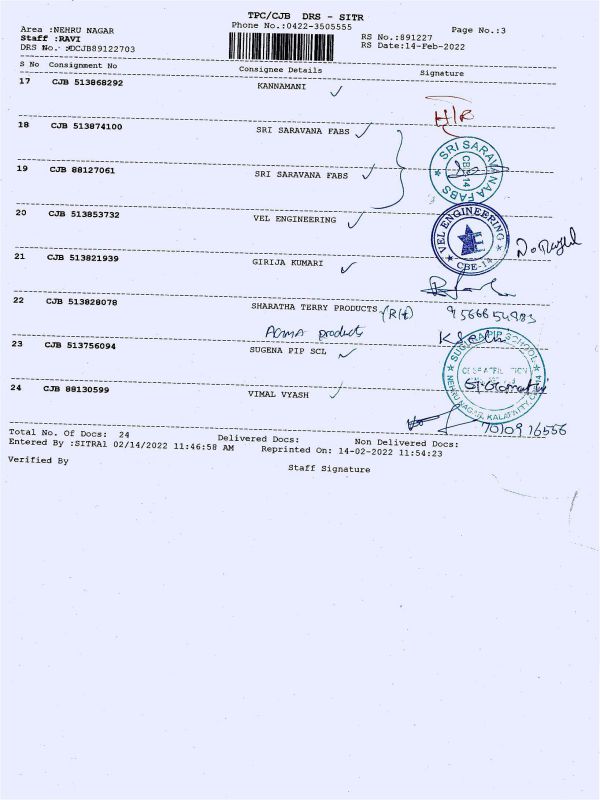 TPC/CJB DRS - SITR
Area :NEHRU NAGAR
Phone No.:0422-3505555
Page No.:3
Staff :RAVI
RS No.:891227
DRS No. :DCJB89122703
RS Date:14-Feb-2022
S No Consignment No Consignee Details Signature
17 CJB 513868292 KANNAMANI
H/R
18 CJB 513874100 SRI SARAVANA FABS
SRI SARAVANAA FABS
CBE-14
19 CJB 88127061 SRI SARAVANA FABS
20 CJB 513853732 VEL ENGINEERING
VEL ENGINEERING
CBE-14
21 CJB 513821939 GIRIJA KUMARI
22 CJB 513828078 SHARATHA TERRY PRODUCTS (R/t)
products
23 CJB 513756094 SUGENA PIP SCL
SUGUNA PIP SCHOOL
NEHRU NAGAR, KALAPATTY
24 CJB 88130599 VIMAL VYASH
7010916556
Total No. Of Docs: 24 Delivered Docs: Non Delivered Docs:
Entered By :SITRA1 02/14/2022 11:46:58 AM Reprinted On: 14-02-2022 11:54:23
Verified By
Staff Signature